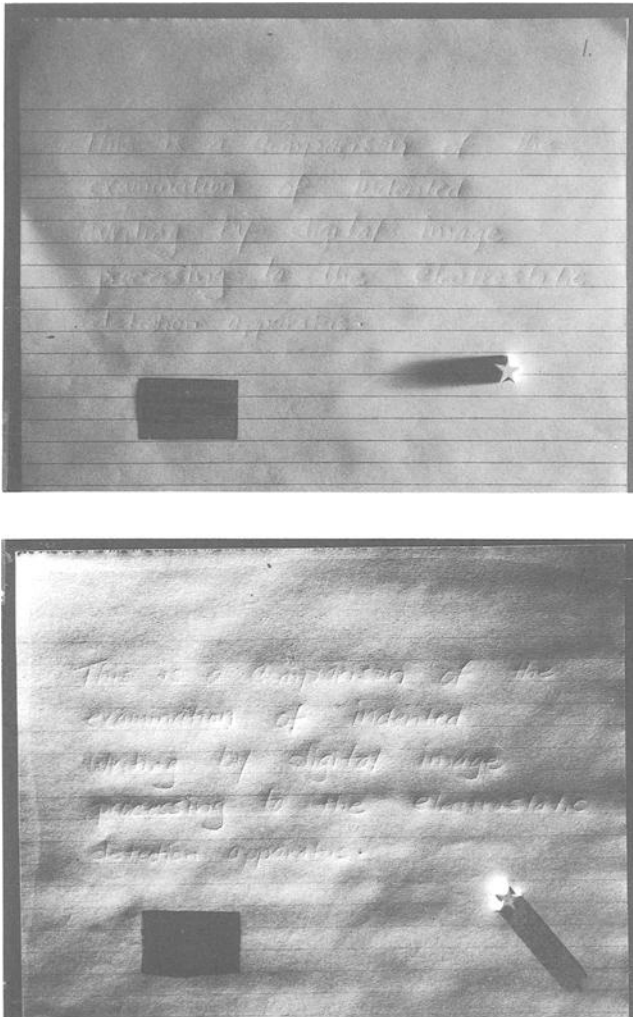 1.
This is a comparison of the
examination of indented
writing by digital image
processing to the electrostatic
detection apparatus.
This is a comparison of the
examination of indented
writing by digital image
processing to the electrostatic
detection apparatus.